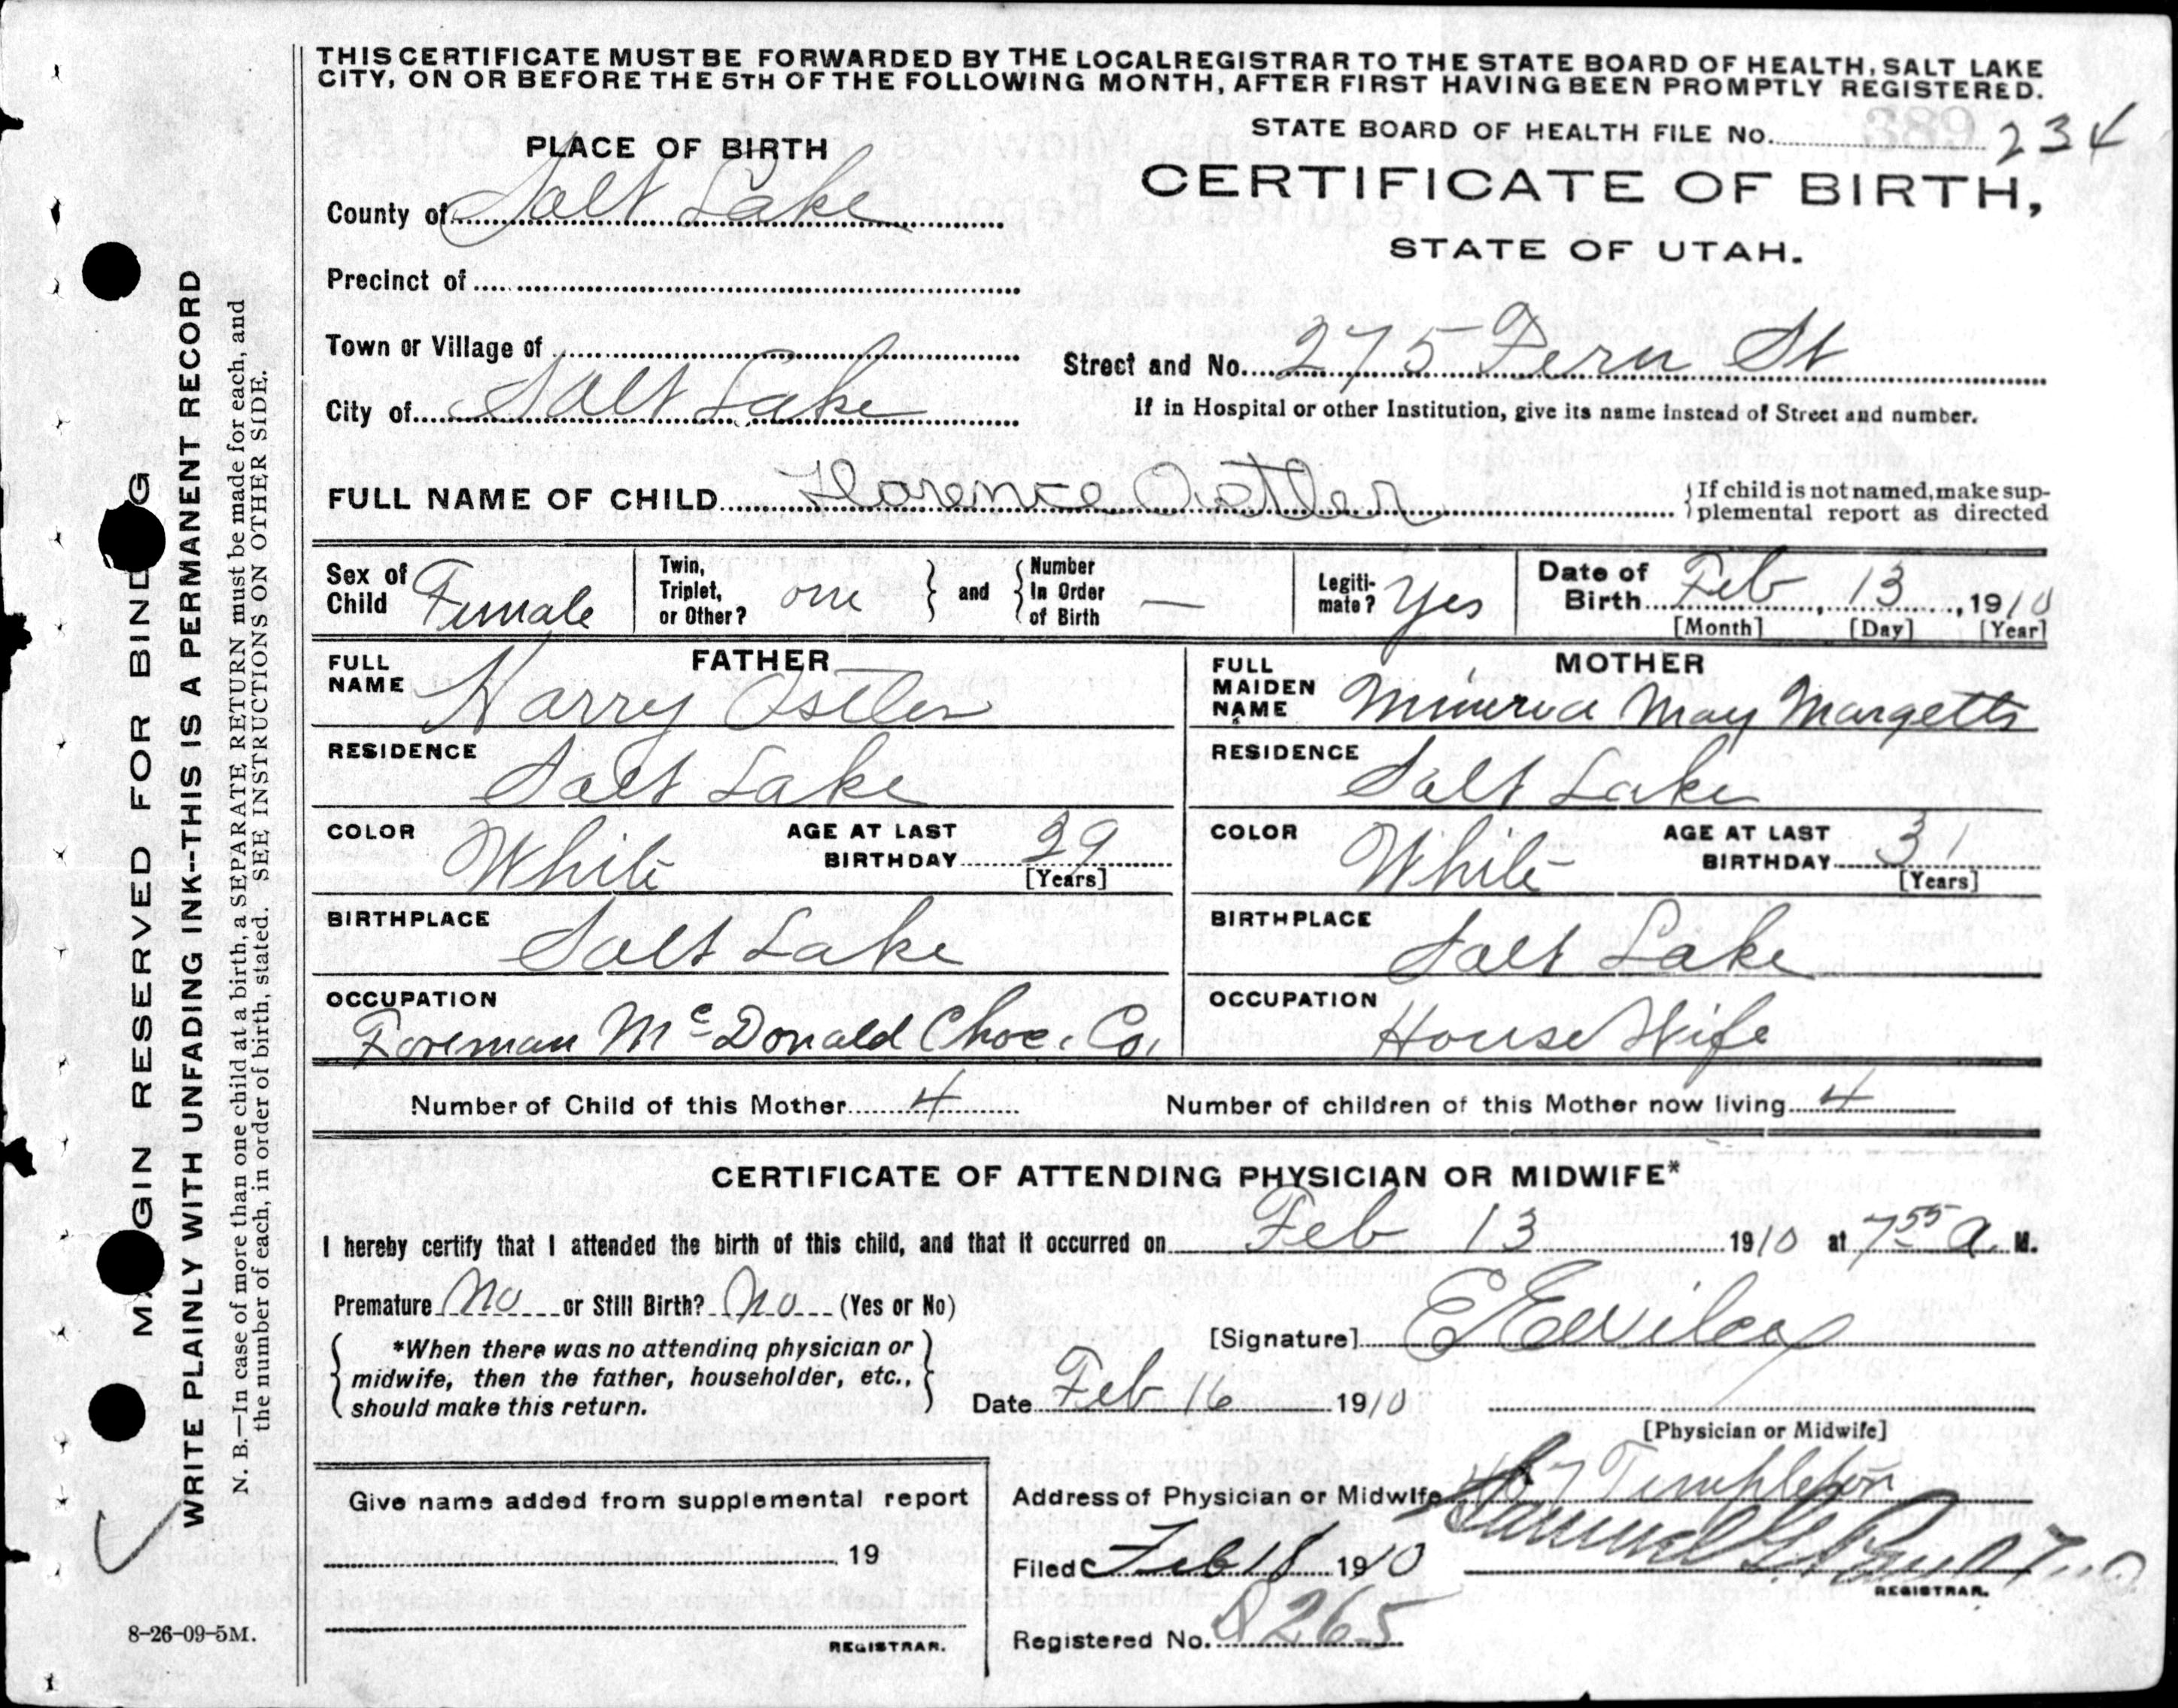 THIS CERTIFICATE MUST BE FORWARDED BY THE LOCAL REGISTRAR TO THE STATE BOARD OF HEALTH, SALT LAKE
CITY, ON OR BEFORE THE 5TH OF THE FOLLOWING MONTH, AFTER FIRST HAVING BEEN PROMPTLY REGISTERED.
STATE BOARD OF HEALTH FILE No. 234
PLACE OF BIRTH
CERTIFICATE OF BIRTH,
County of Salt Lake
STATE OF UTAH.
Precinct of
Town or Village of
Street and No. 275 Fern St
City of Salt Lake
If in Hospital or other Institution, give its name instead of Street and number.
FULL NAME OF CHILD Florence Ostler
If child is not named, make sup-
plemental report as directed
Sex of Child Female
Twin, Triplet, or Other? one
and
Number In Order of Birth —
Legiti-mate? Yes
Date of Birth Feb, 13, 1910
[Month] [Day] [Year]
FATHER
FULL NAME Harry Ostler
MOTHER
FULL MAIDEN NAME Minerva May Margetts
RESIDENCE Salt Lake
RESIDENCE Salt Lake
COLOR White AGE AT LAST BIRTHDAY 29 [Years]
COLOR White AGE AT LAST BIRTHDAY 31 [Years]
BIRTHPLACE Salt Lake
BIRTHPLACE Salt Lake
OCCUPATION
Foreman McDonald Choc. Co.
OCCUPATION
House Wife
Number of Child of this Mother 4
Number of children of this Mother now living 4
CERTIFICATE OF ATTENDING PHYSICIAN OR MIDWIFE*
I hereby certify that I attended the birth of this child, and that it occurred on Feb 13 1910 at 7 55 a. M.
Premature No or Still Birth? No (Yes or No)
*When there was no attending physician or
midwife, then the father, householder, etc.,
should make this return.
[Signature]
Date Feb 16 1910
[Physician or Midwife]
Give name added from supplemental report
19
REGISTRAR.
Address of Physician or Midwife 407 Templeton
Filed Feb 18 1910
Samuel G.
REGISTRAR.
Registered No. 265
8-26-09-5M.
MARGIN RESERVED FOR BINDING
WRITE PLAINLY WITH UNFADING INK--THIS IS A PERMANENT RECORD
N. B.—In case of more than one child at a birth, a SEPARATE RETURN must be made for each, and
the number of each, in order of birth, stated. SEE INSTRUCTIONS ON OTHER SIDE.